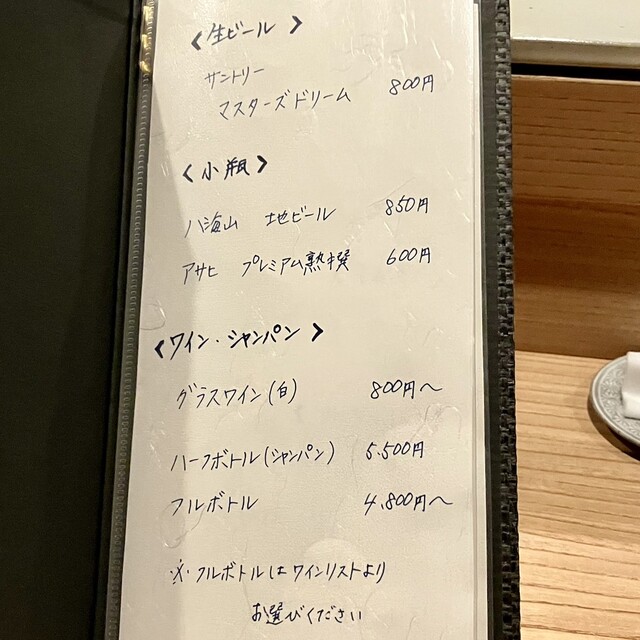 〈 生ビール 〉
サントリー
マスターズドリーム 800円
〈 小瓶 〉
八海山 地ビール 850円
アサヒ プレミアム熟撰 600円
〈 ワイン・シャンパン 〉
グラスワイン(白) 800円〜
ハーフボトル(シャンパン) 5.500円
フルボトル 4.800円〜
※フルボトルはワインリストより
お選びください